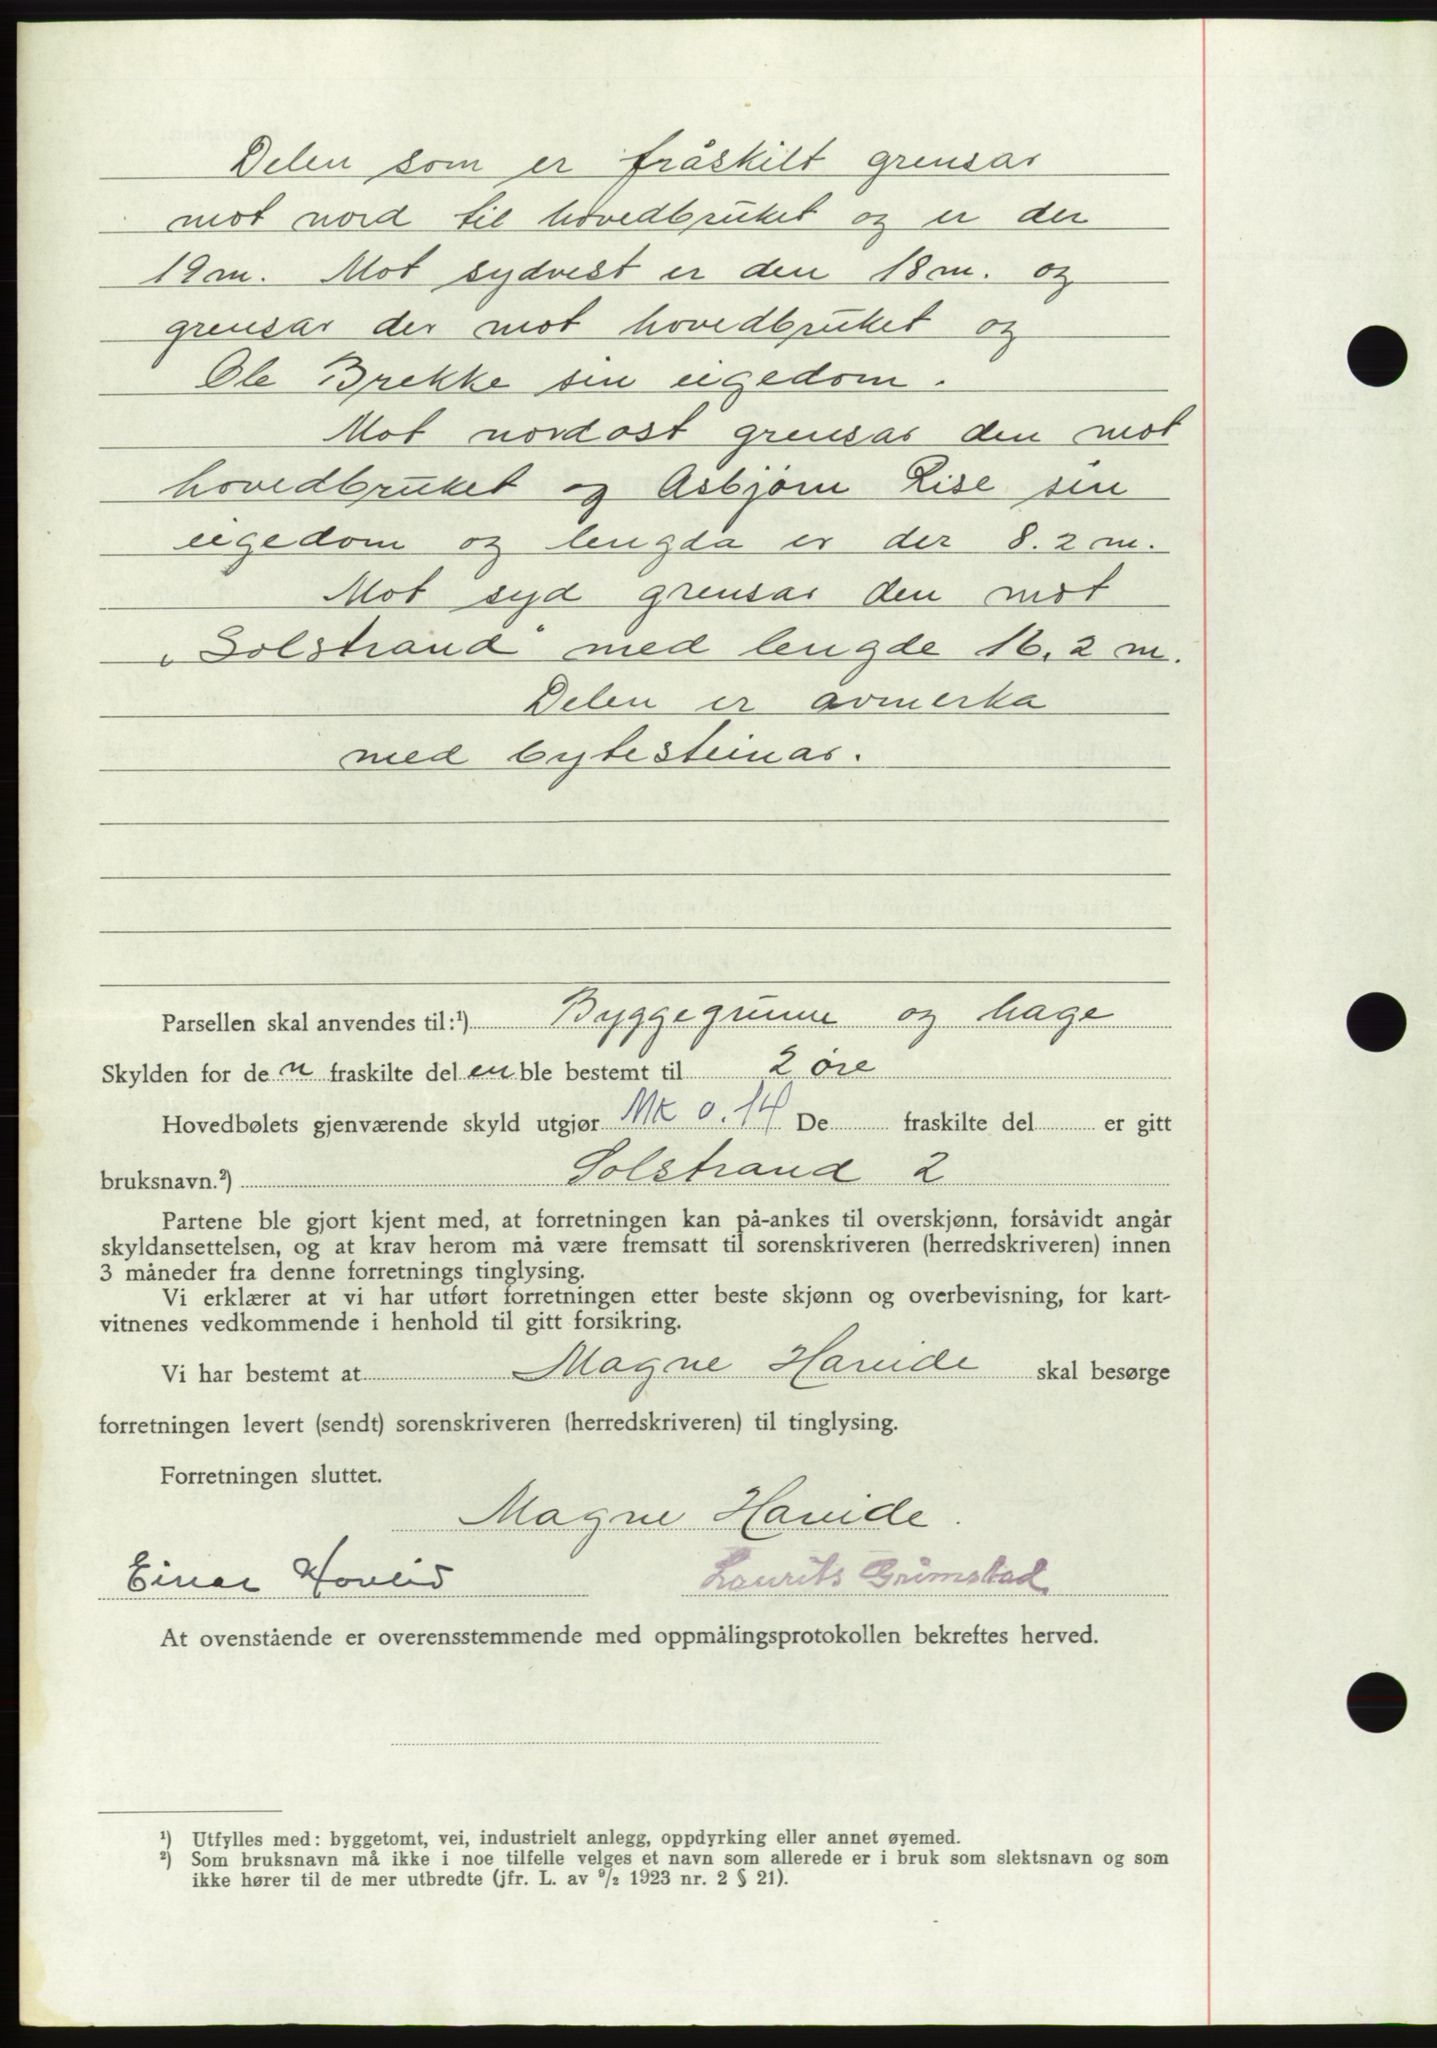 Delen som er fråskilt grensar
mot nord til hovedbruket og er der
19 m. Mot sydvest er den 18 m. og
grensar der mot hovedbruket og
Ole Brekke sin eigedom.
Mot nordost grensar den mot
hovedbruket og Asbjørn Rise sin
eigedom og lengda er der 8.2 m.
Mot syd grensar den mot
"Solstrand" med lengde 16,2 m.
Delen er avmerka
med bytesteinar.
Parsellen skal anvendes til:¹) Byggegrunn og hage
Skylden for de n fraskilte del en ble bestemt til 2 øre
Hovedbølets gjenværende skyld utgjør Mk 0.14 De fraskilte del er gitt
bruksnavn.²) Solstrand 2
Partene ble gjort kjent med, at forretningen kan på-ankes til overskjønn, forsåvidt angår
skyldansettelsen, og at krav herom må være fremsatt til sorenskriveren (herredskriveren) innen
3 måneder fra denne forretnings tinglysing.
Vi erklærer at vi har utført forretningen etter beste skjønn og overbevisning, for kart-
vitnenes vedkommende i henhold til gitt forsikring.
Vi har bestemt at Magne Hareide skal besørge
forretningen levert (sendt) sorenskriveren (herredskriveren) til tinglysing.
Forretningen sluttet.
Magne Hareide.
Einar Hovlid Laurits Grimstad
At ovenstående er overensstemmende med oppmålingsprotokollen bekreftes herved.
¹) Utfylles med: byggetomt, vei, industrielt anlegg, oppdyrking eller annet øyemed.
²) Som bruksnavn må ikke i noe tilfelle velges et navn som allerede er i bruk som slektsnavn og som
ikke hører til de mer utbredte (jfr. L. av ⁹/₂ 1923 nr. 2 § 21).